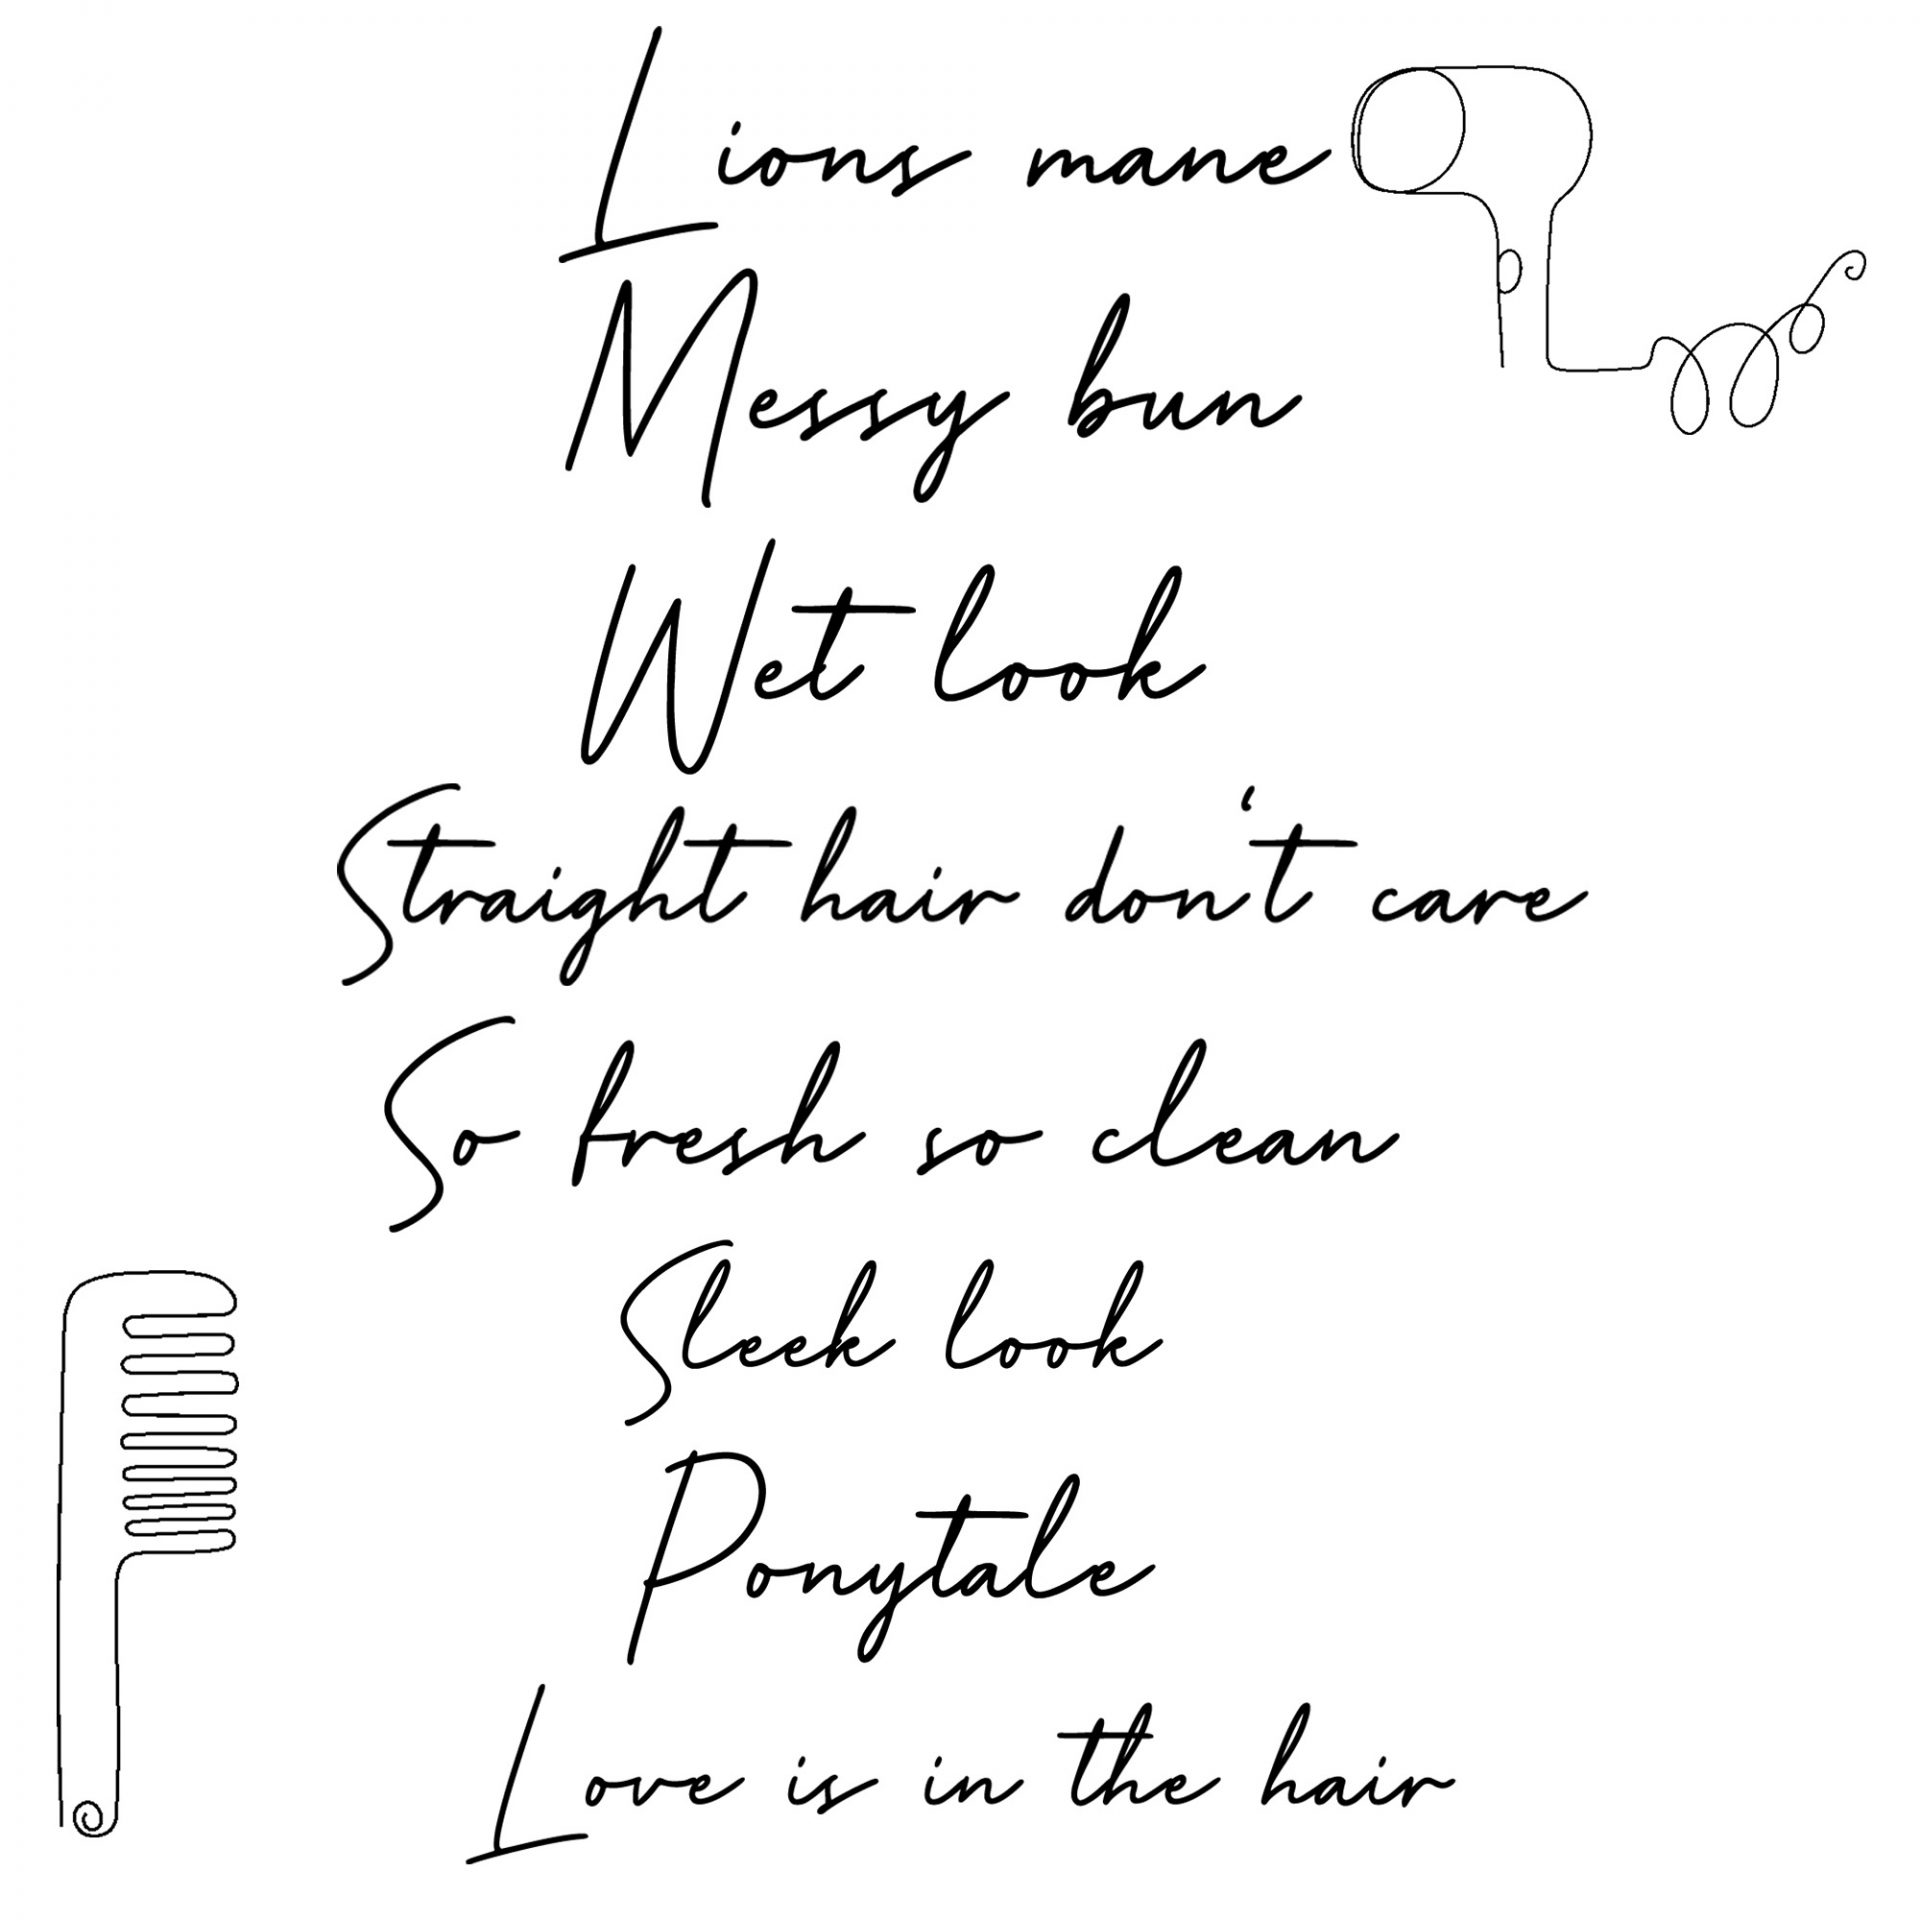 Lions mane
Messy bun
Wet look
Straight hair don't care
So fresh so clean
Sleek look
Ponytale
Love is in the hair